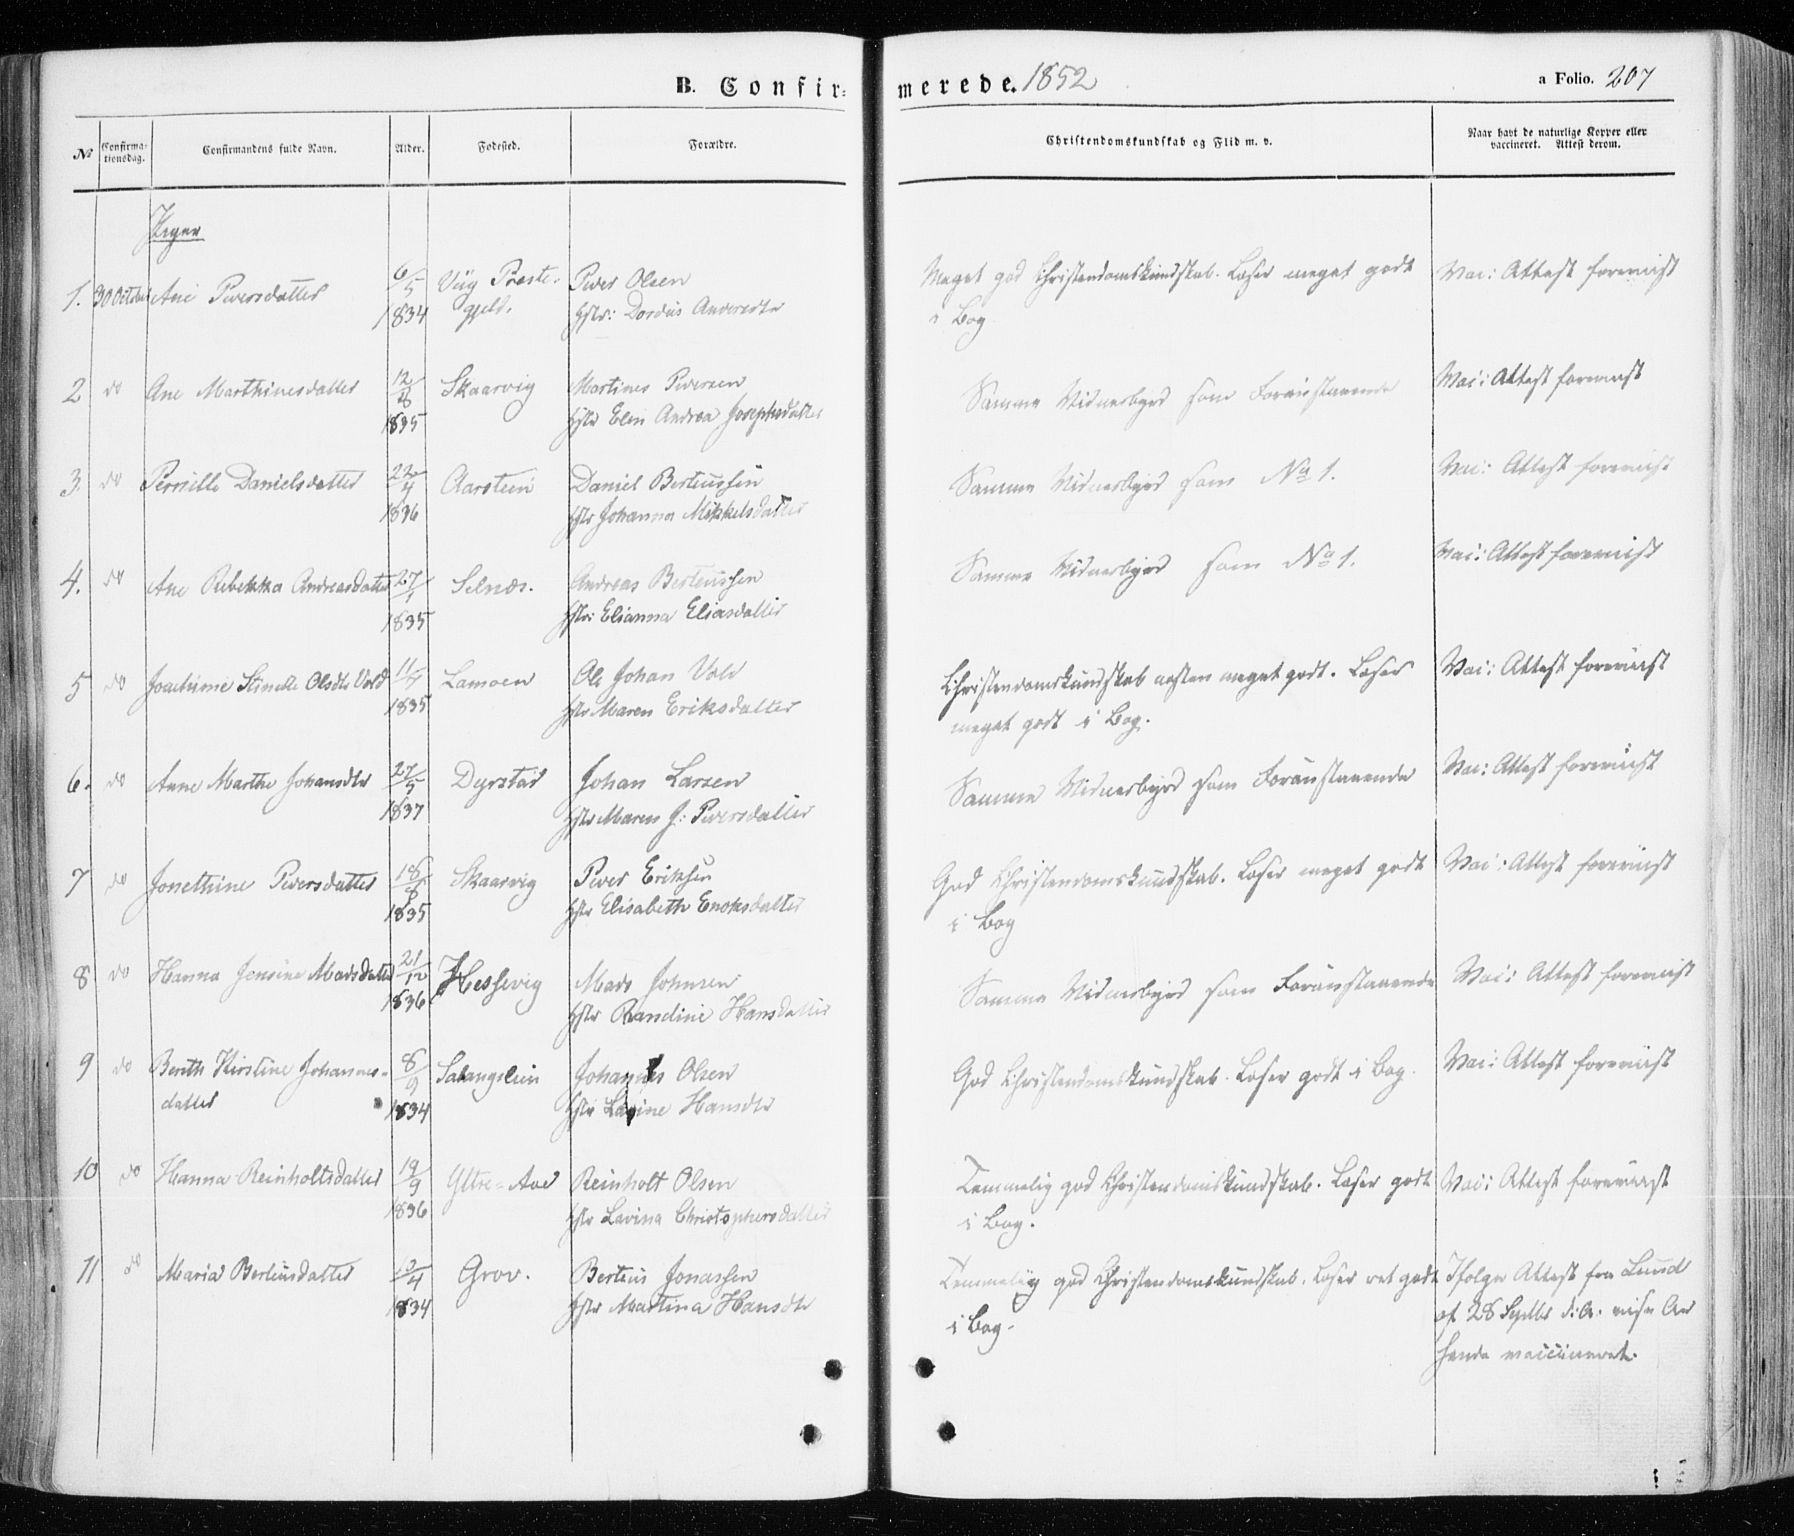 B. Confirmerede. 1852
a Folio. 207
No Confirmationsdag. Confirmandens fulde Navn. Alder. Fødested. Forældre. Christendomskundskab og Flid m. v. Naar havt de naturlige Kopper eller vaccineret. Attest derom.
Piger
1. 30 October Ane Peversdatter 6/5 1834 Præstegjeld. Peder Olsen
Meget god Christendomskundskab. Læser meget godt
i Bog
Vac: Attest foreviist
2 do Ane Marthinesdatter 12/8 1835 Skaarvig Martines Pedersen
Hstr Elen Andrea Josephsdatter
Samme Vidnesbyrd som Foranstaaende
Vac: Attest foreviist
3. do Pernille Danielsdatter 22/4 1836 Aarstein Daniel Berteussen
Hstr Johanna Mikkelsdatter
Samme Vidnesbyrd som No 1.
Vac: Attest foreviist
4. do Ane Rebekka Andreasdatter 27/1 1835 Selnæs. Andreas Berteussen
Hstr: Elianna Eliasdatter
Samme Vidnesbyrd som No 1.
Vac: Attest foreviist
5 do Joachime Olsdtr Vold 1835 Lamoen Ole Johan Vold
Hstr Maren Eriksdatter
Christendomskundskab næsten meget godt. Læser
meget godt i Bog.
Vac: Attest foreviist
6. do Anne Marthe Johansdtr 27/5 1837 Dyrstad Johan Larsen
Hstr Maren J: Pedersdatter
Samme Vidnesbyrd som Foranstaaende
Vac: Attest foreviist
7 do Jonethine Pedersdatter 18/8 1835 Skaarvig Peder Eriksen
Hstr Elisabeth Enoksdatter
God Christendomskundskab. Læser meget godt
i Bog
Vac: Attest foreviist
8 do Hanna Jensine Madsdatter 21/12 1836 Hessevig Mads Johnsen
Hstr Randine Hansdatter
Samme Vidnesbyrd som Foranstaaende
Vac: Attest foreviist
9 do Berith Kirstine Johannes-
datter 8/9 1834 Salangslien Johannes Olsen
Hstr Lavine Hansdtr
God Christendomskundskab. Læser godt i Bog.
Vac: Attest foreviist
10 do Hanna Reinholtsdatter 19/9 1836 Yttre-Aae Reinholt Olsen
Hstr Lavina Christophersdatter
Temmelig god Christendomskundskab. Læser godt
i Bog.
Vac: Attest foreviist
11 do Maria Berteusdatter 12/4 1834 Grov. Berteus Jonassen
Hstr Martina Hansdtr
Temmelig god Christendomskundskab. Læser ret godt
i Bog.
Ifølge Attest fra Lund
af 28 Septbr d. A.
vaccineret.